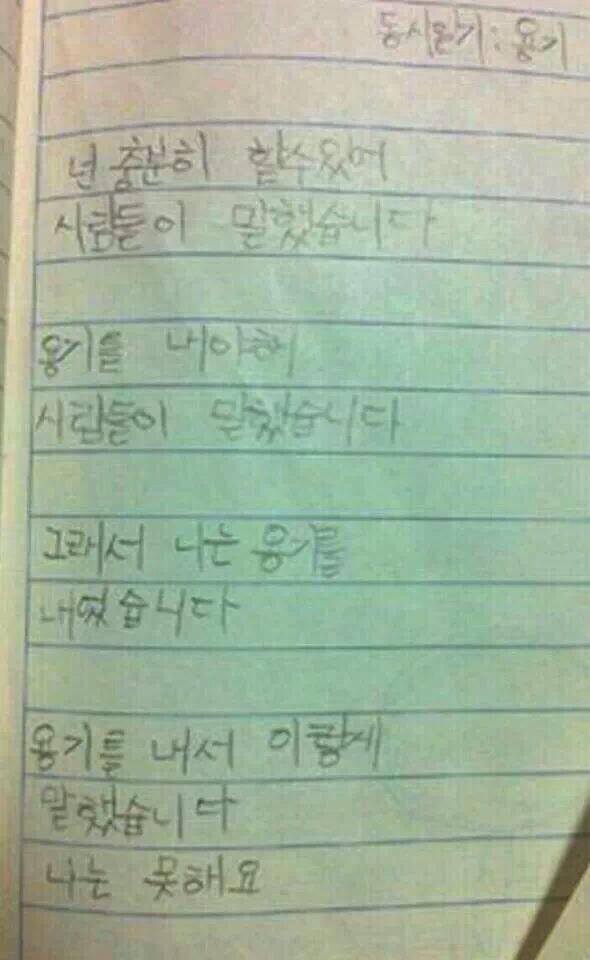 동시쓰기 : 용기
넌 충분히 할수있어
사람들이 말했습니다
용기를 내야해
사람들이 말했습니다
그래서 나는 용기를
내었습니다
용기를 내서 이렇게
말했습니다
나는 못해요